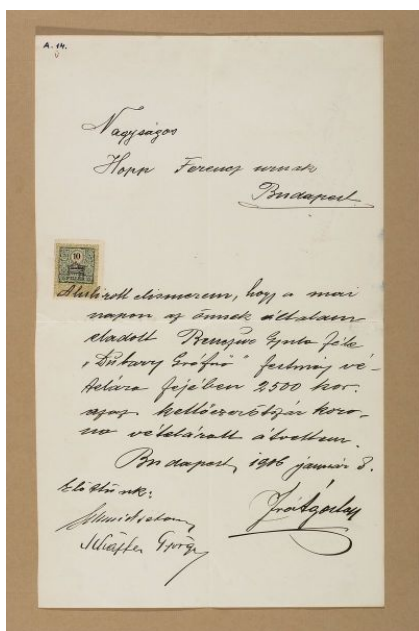 A. 14.
Nagyságos
Hopp Ferencz urnak
Budapest
10
Alulirott elismerem, hogy a mai
napon az önnek általam
eladott Benczur Gyula féle
„Dubarry Grófnő" festmény vé-
telára fejében 2500 kor.
azaz kettőezerötszáz koro-
na vételárat átvettem.
Budapest, 1906 január 3.
Előttünk:
György